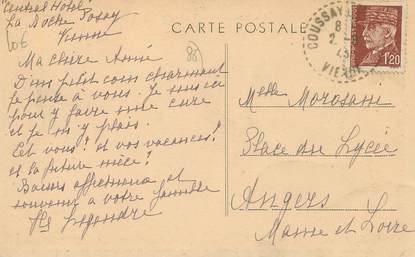 Central Hotel
La Roche Posay
Vienne
Ma chère Année
D'un petit coin charmant
je pense à vous. Je suis ici
pour y faire une cure
et je m'y plais.
Et vous? et vos vacances?
et la future nièce?
Baisers affectueux et
souvenir à votre famille
Legendre
CARTE POSTALE
COUSSAY
VIENNE
1F20
Melle Morosane
Place du Lycée
Angers
Maine et Loire